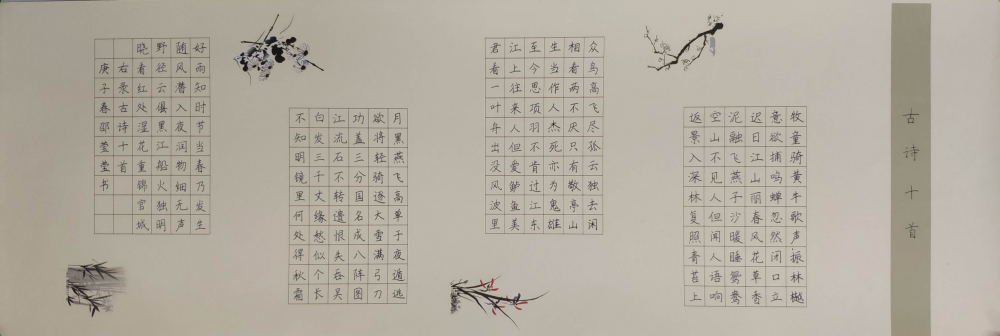 古诗十首
牧童骑黄牛歌声振林樾
意欲捕鸣蝉忽然闭口立
迟日江山丽春风花草香
泥融飞燕子沙暖睡鸳鸯
空山不见人但闻人语响
返景入深林复照青苔上
众鸟高飞尽孤云独去闲
相看两不厌只有敬亭山
生当作人杰死亦为鬼雄
至今思项羽不肯过江东
江上往来人但爱鲈鱼美
君看一叶舟出没风波里
月黑燕飞高单于夜遁逃
欲将轻骑逐大雪满弓刀
功盖三分国名成八阵图
江流石不转遗恨失吞吴
白发三千丈缘愁似个长
不知明镜里何处得秋霜
好雨知时节当春乃发生
随风潜入夜润物细无声
野径云俱黑江船火独明
晓看红处湿花重锦官城
右录古诗十首
庚子春邵莹莹书